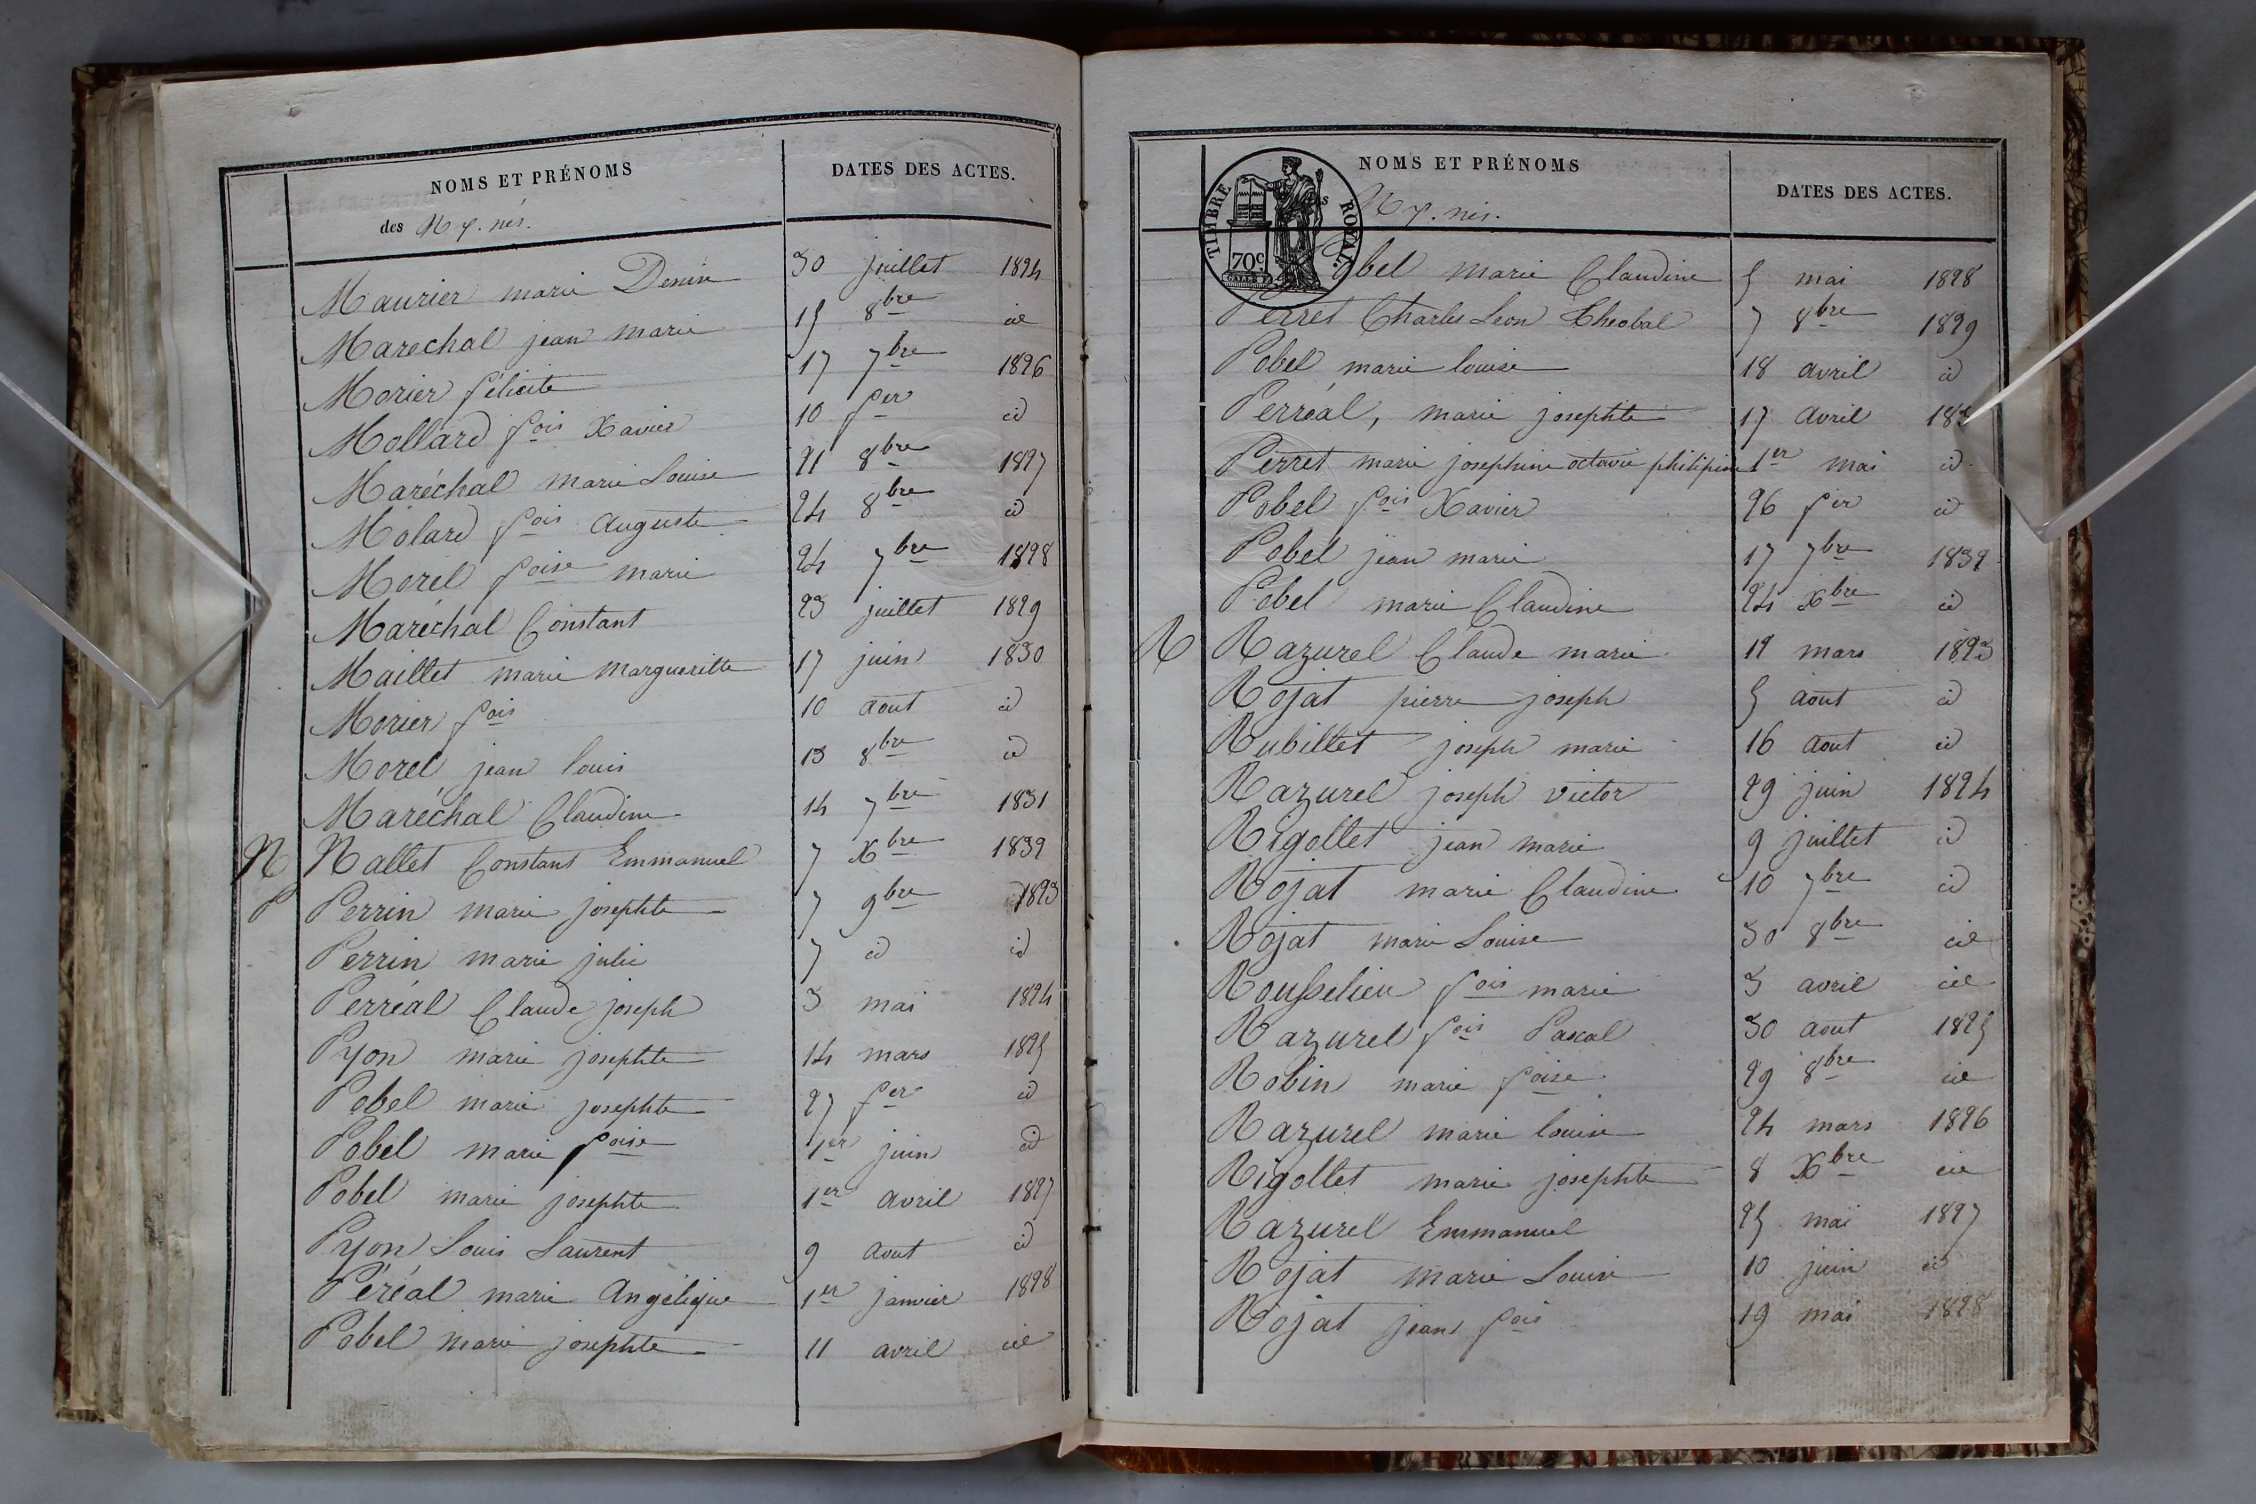 NOMS ET PRÉNOMS
DATES DES ACTES.
des N y. nés.
Maurier marie Denise 30 juillet 1824
Marechal jean marie 15 8bre id
Morier félicité 17 7bre 1826
Mollard fois Xavier 10 fer id
Maréchal marie Louise 21 8bre 1827
Molard fois Auguste 24 8bre id
Morel foise marie 24 7bre 1828
Maréchal Constant 23 juillet 1829
Maillet marie Margueritte 17 juin 1830
Morier fois 10 aout id
Morel jean louis 13 8bre id
Maréchal Claudine 14 7bre 1831
N Nallet Constant Emmanuel 7 Xbre 1832
P Perrin marie josephte 7 9bre 1823
Perrin marie julie 7 id id
Perréal Claude joseph 3 mai 1824
Pyon marie josephte 14 mars 1825
Pobel marie josephte 27 fer id
Pobel marie foise 1er juin id
Pobel marie josephte 1er avril 1827
Pyon Louis Laurent 9 aout id
Péréal marie Angélique 1er janvier 1828
Pobel marie josephte 11 avril id
TIMBRE ROYAL.
70c
NOMS ET PRÉNOMS
DATES DES ACTES.
N y. nés.
Pobel marie Claudine 5 mai 1828
Perret Charles Leon Theobal 7 8bre 1829
Pobel marie louise 18 avril id
Perréal, marie josephte 17 avril
Perret marie josephine octavie philipine 1er mai id
Pobel fois Xavier 26 fer id
Pobel jean marie 17 7bre 1832
Pobel marie Claudine 24 Xbre id
R Razurel Claude marie 12 mars 1823
Rojat pierre joseph 5 aout id
Rubillet joseph marie 16 aout id
Razurel joseph victor 29 juin 1824
Rigollet jean marie 9 juillet id
Rojat marie Claudine 10 7bre id
Rojat marie Louise 30 8bre id
Rousselieu fois marie 3 avril id
Razurel fois Pascal 30 aout 1825
Robin marie foise 29 8bre id
Razurel marie louise 24 mars 1826
Rigollet marie josephte 8 Xbre id
Razurel Emmanuel 25 mai 1827
Rojat marie Louise 10 juin id
Rojat jean fois 19 mai 1828